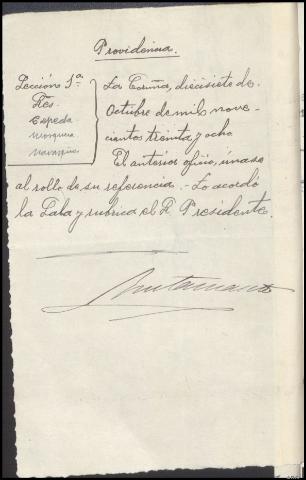 Providencia.
Sección 1ª
Sres.
Cepeda
La Coruña, diecisiete de
Octubre de mil nove-
cientos treinta y ocho
El anterior oficio, únase
al rollo de su referencia.- Lo acordó
la Sala y rubrica el Sr Presidente.